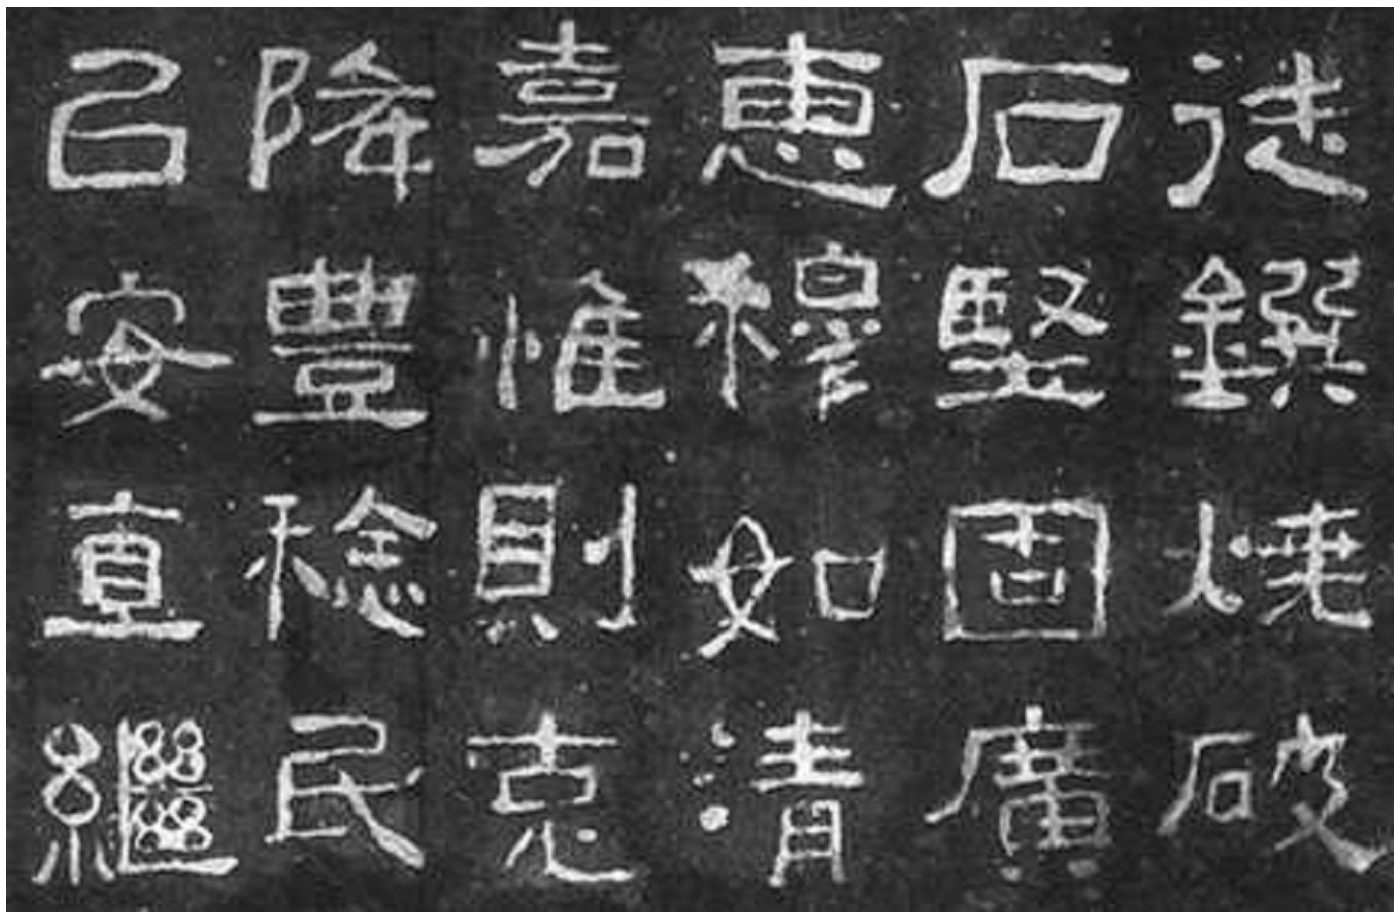 徒鐉燒破
石堅固廣
惠穆如清
嘉惟則克
降豐稔民
㠯安直繼